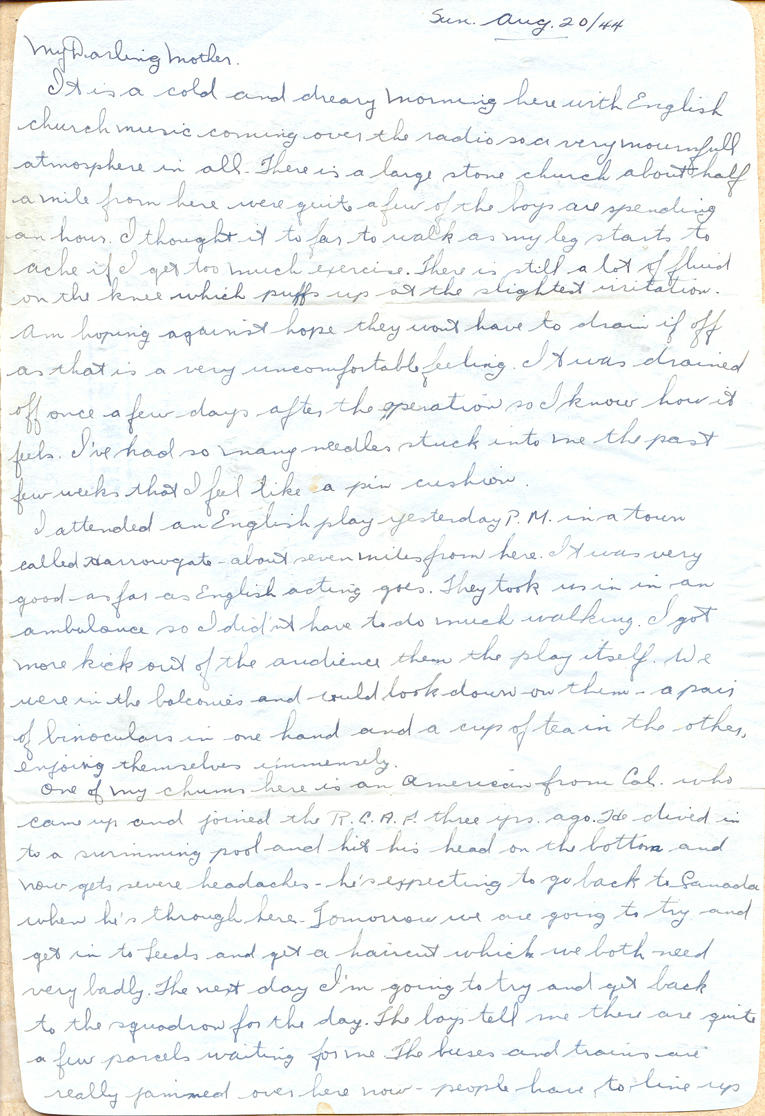 Sun. Aug. 20/44
My Darling Mother.
It is a cold and dreary morning here with English
church music coming over the radio so a very mournfull
atmosphere in all. There is a large stone church about half
a mile from here were quite a few of the boys are spending
an hour. I thought it to far to walk as my leg starts to
ache if I get too much exercise. There is still a lot of fluid
on the knee which puffs up at the slightest irritation.
Am hoping against hope they wont have to drain if off
as that is a very uncomfortable feeling. It was drained
off once a few days after the operation so I know how it
feels. I've had so many needles stuck into me the past
few weeks that I feel like a pin cushion.
I attended an English play yesterday P.M. in a town
called Harrowgate - about seven miles from here. It was very
good - as far as English acting goes. They took us in in an
ambulance so I did'nt have to do much walking. I got
more kick out of the audience them the play itself. We
were in the balconies and could look down on them - a pair
of binoculars in one hand and a cup of tea in the other,
enjoing themselves immensely.
One of my chums here is an American from Cal. who
came up and joined the R.C.A.F. three yrs. ago. He dived in
to a swimming pool and hit his head on the bottom and
now gets severe headaches - he's expecting to go back to Canada
when he's through here. Tomorrow we are going to try and
get in to Leeds and get a haircut which we both need
very badly. The next day I'm going to try and get back
to the squadron for the day. The boys tell me there are quite
a few parcels waiting for me. The buses and trains are
really jammed over here now - people have to line up